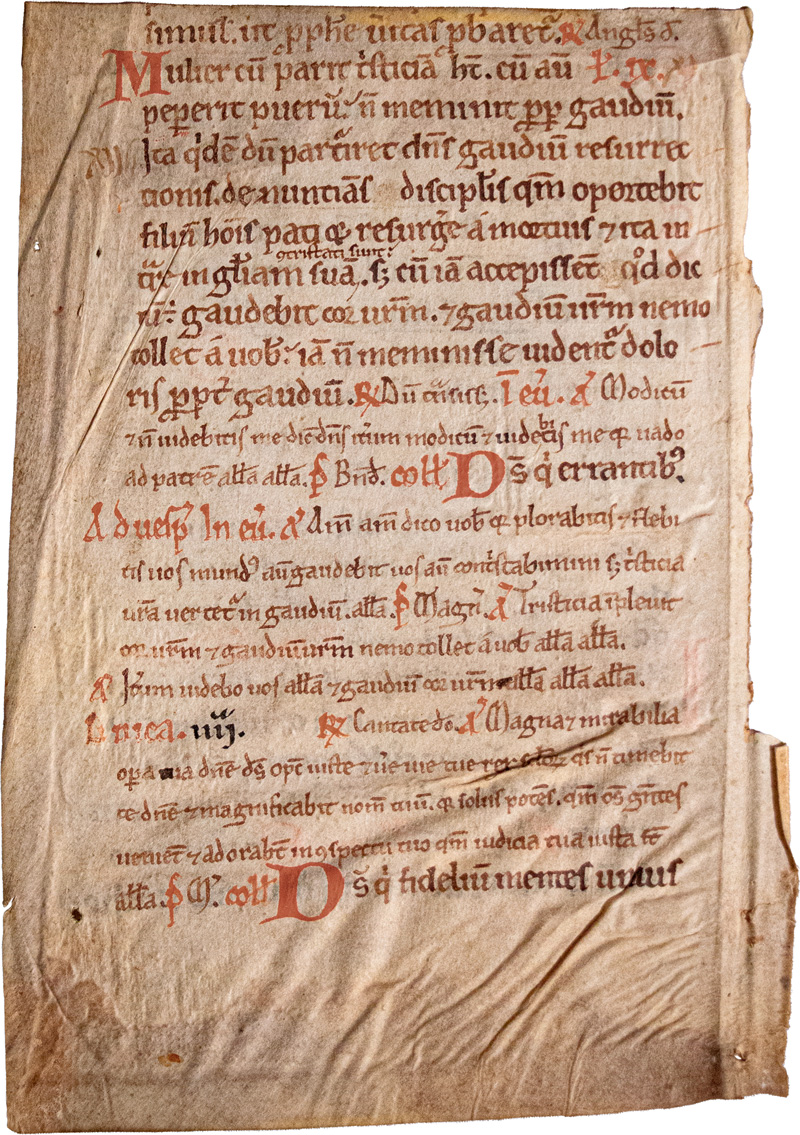 simul. ut ꝓphe uitas ꝓbaretᷣ. ℟ Angłs d̄.
Mulier cū parit tᷤsticiā ht̄. cū aū L̄. ix.
pepererit puerū n̄ meminit ꝓp gaudiū.
Ita qͥdē dū partiret dn̄s gaudiū resurrec
tionis. denuntiās discipłis qm̄ oportebit
filiū hoīs pati & resurgē á mortuis ⁊ ita in
głiam suā. s; cū iā accepissēt qͦd dic
gtristati sunt
gaudebit cor urm̄. ⁊ gaudiū urm̄ nemo
tollet á uob̄ iā n̄ meminisse uidentᷣ dolo
ris ꝓpt gaudiū. ℟ Dū tᷓnsiss; In eū. A᷒ Modicū
⁊ n̄ uidebitis me dic̄ dn̄s itͤum modicū ⁊ uidebitis me & uado
ad patrē ałła ałła. P̄ Bn̄d. coll̄ Ds̄ qͥ errantibꝰ.
Ad uesp̄ In eū. A᷒ Am̄ am̄ dico uob̄ & plorabitis ⁊ flebi
tis uos mundꝰ aū gaudebit uos aū contͥstabimini s; tͥsticia
urā uertetᷣ in gaudiū. ałła. P̄ Magn̄. A᷒ Tristicia īpleuit
cor urm̄ ⁊ gaudiū urm̄ nemo tollet á uob̄ ałła ałła.
A᷒ Itͤum uidebo uos ałła ⁊ gaudiū cor urm̄ ałła ałła ałła.
Dn̄ica. iiij. ℟ Cantate dō. A᷒ Magna ⁊ mirabilia
opera dn̄e ds̄ opc̄ iuste ⁊ ūe uie tue qͥs n̄ timebit
te dn̄e ⁊ magnificabit nom̄ tuū. & solus potēs. qm̄ om̄s gn̄tes
uenient ⁊ adorabt̄ in ꝯspectu tuo qm̄ iudicia tua iusta st̄
ałła. P̄ M̄. coll̄ Ds̄ qͥ fideliū mentes unius